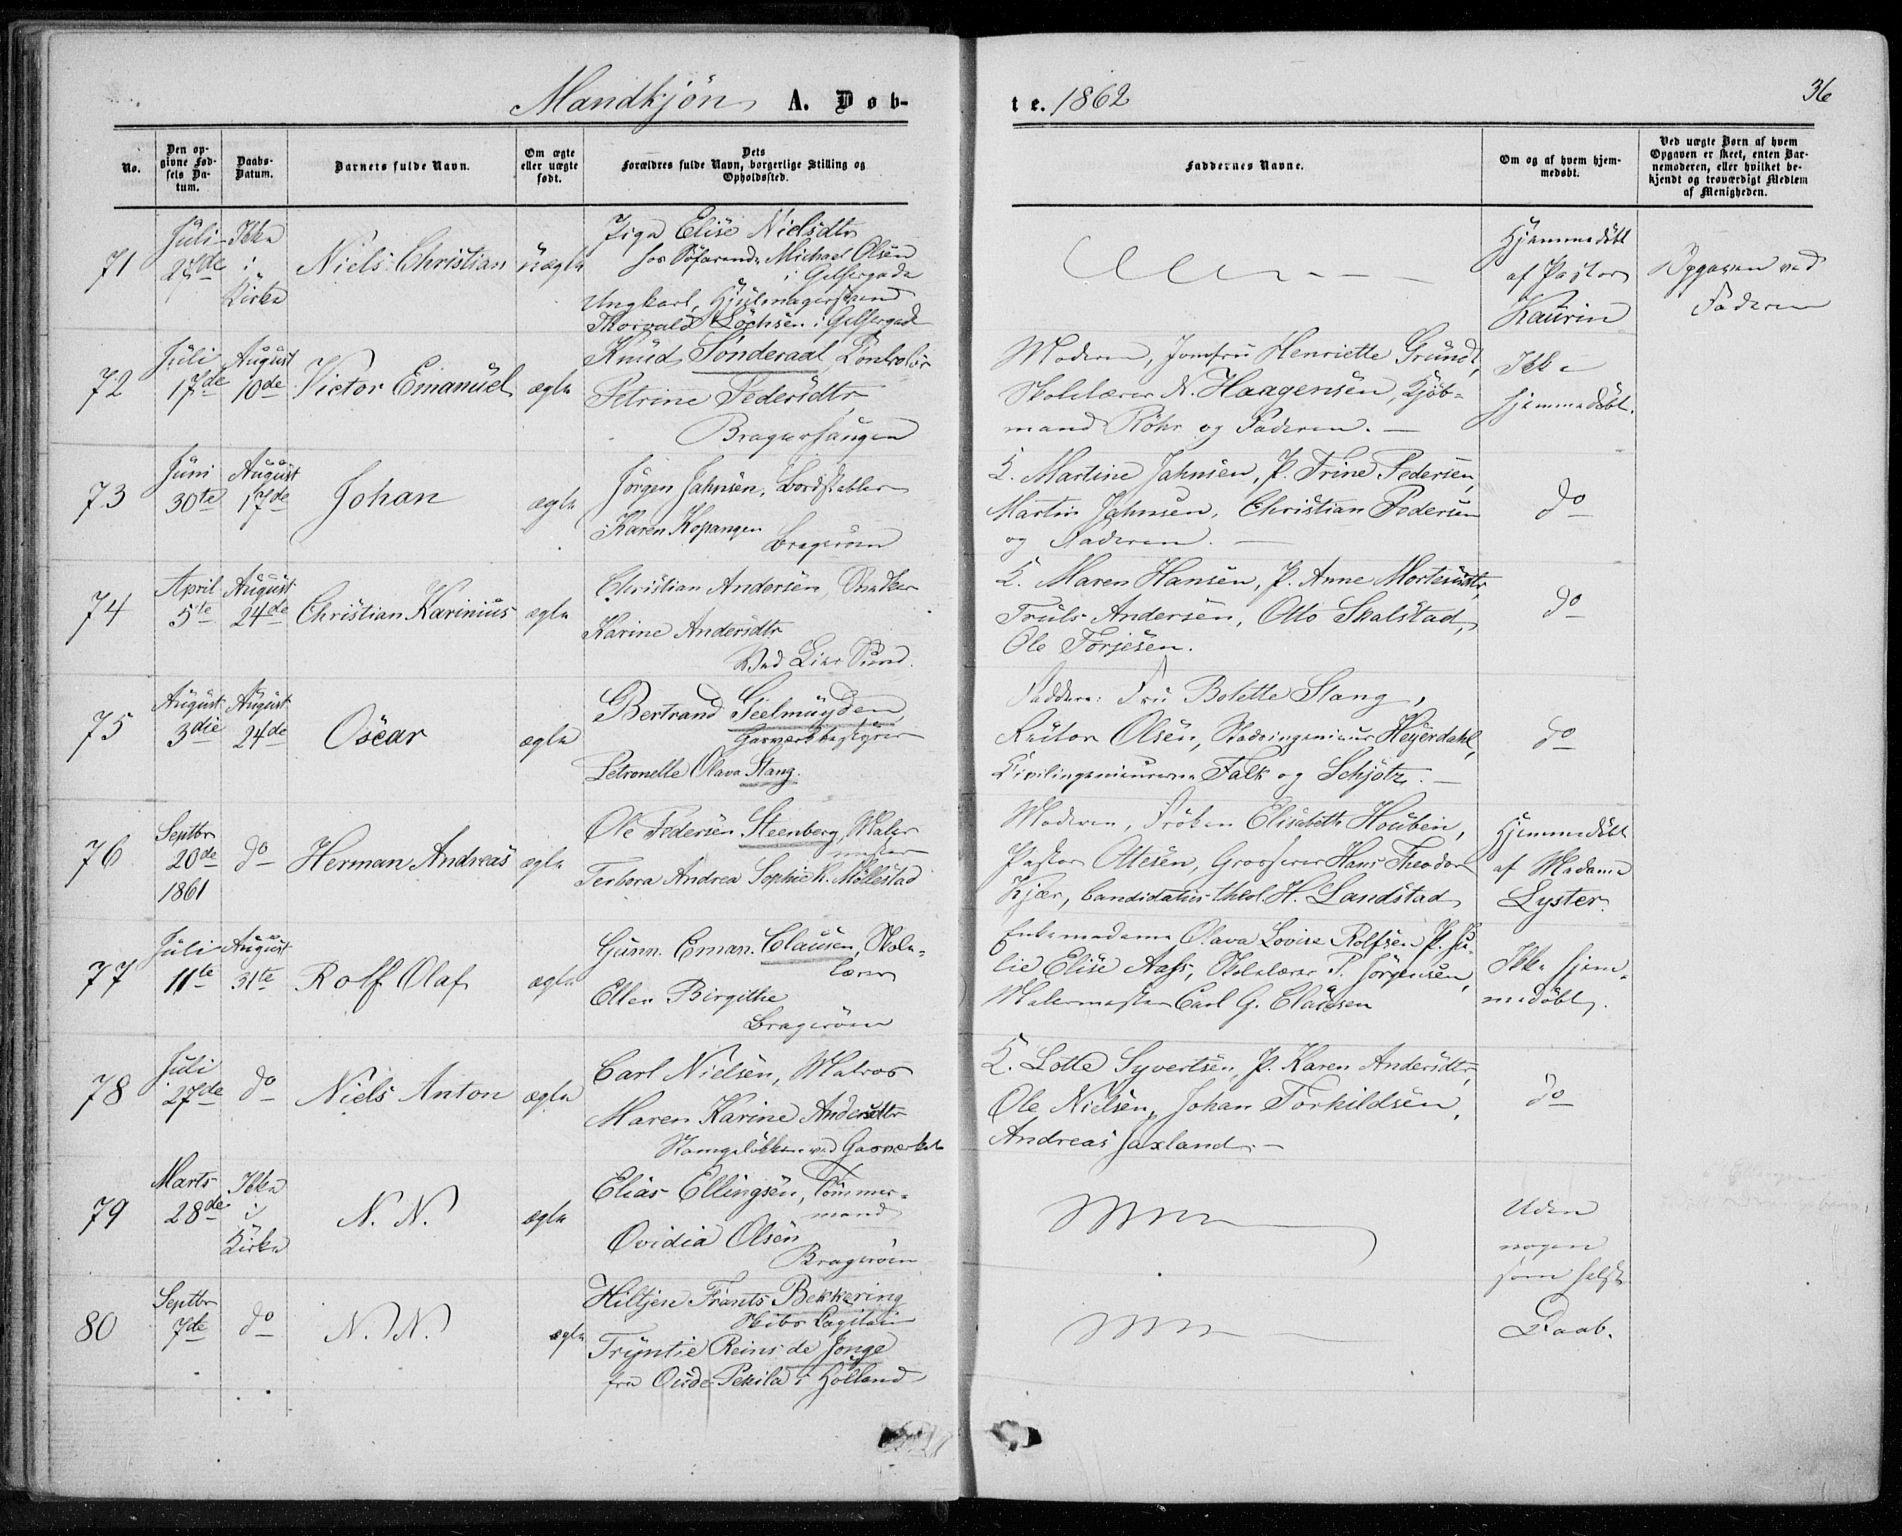 Mandkjön A. Døb-
te. 1862
36
No.
Den op-
givne Fød-
sels Da-
tum.
Daabs-
Datum.
Barnets fulde Navn.
Om ægte
eller uægte
født.
Dets
Forældres fulde Navn, borgerlige Stilling og
Opholdssted.
Faddernes Navne.
Om og af hvem hjem-
medøbt.
Ved uægte Børn af hvem
Opgaven er skeet, enten Bar-
nemoderen, eller hvilket be-
kjendt og troværdigt Medlem
af Menigheden.
71
Juli
27de
Ikke
i
Kirke
Niels Christian
uægte
Pige Elise Nielsdtr
hos Söfarende Michael Olsen
i Gelfergade
Ungkarl, Hjulmagersvend
Thorvald Lochsen i Gelfergade
Hjemmedöbt
af Pastor
Kaurin
Opgaven ved
Faderen
72
Juli
17de
August
10de
Victor Emanuel
ægte
Knud Sönderaal, Kontrolör
Petrine Pedersdtr
Bragerhaugen
Moderen, Jomfru Henriette Grundt,
Skolelærer N. Haagensen, Kjöb-
mand Röhr og Faderen.
Ikke
hjemmedöbt.
73
Juni
30te
August
17de
Johan
ægte
Jörgen Jahnsen, Bordstabler
Karen Kopangen
Bragerøen
K. Martine Jahnsen, P. Trine Pedersen,
Martin Jahnsen, Christian Pedersen
og Faderen.
do
74
April
5te
August
24de
Christian Karinius
ægte
Christian Andersen, Snedker
Karine Andersdtr
Ved Lier Sund.
K. Maren Hansen, P. Anne Mortensdtr,
Truls Andersen, Otto Skalstad,
Ole Torjesen.
do
75
August
3die
August
24de
Oscar
ægte
Bertrand Geelmuyden,
Gasværksbestyrer
Petronelle Olava Stang.
Faddere: Fru Bolette Stang,
Rector Olsen, Stadsingenieur Heyerdahl,
Civilingenieurerne Falk og Schjötz.
do
76
Septbr
20de
1861
do
Herman Andreas
ægte
Ole Pedersen Steenberg, Maler
mester
Terbora Andrea Sophie K. Möllestad
Moderen, Fröken Elisabeth Houben,
Pastor Ottesen, Grosserer Hans Theodor
Kjær, Candidatus theol. H. Landstad
Hjemmedöbt
af Madame
Lyster.
77
Juli
11te
August
31te
Rolf Olaf
ægte
Gunn. Eman. Clausen, Skole-
lærer
Ellen Birgithe
Bragerøen
Enkemadame Olava Lovise Rolfsen P. Ju-
lie Elise Aass, Skolelærer P. Jörgensen,
Malermester Carl G. Clausen
Ikke hjem-
medöbt.
78
Juli
27de
do
Niels Anton
ægte
Carl Nielsen, Matros
Maren Karine Andersdtr
Stangelökken ved Gasværket
K. Lotte Syvertsen, P. Karen Andersdtr,
Ole Nielsen, Johan Torkildsen,
Andreas Jaxland.
do
79
Marts
28de
Ikke
i
Kirke
N. N.
ægte
Elias Ellingsen, Tömmer-
mand
Ovidia Olsen
Bragerøen
Uden
nogen
som helst
80
Septbr
7de
do
N. N.
ægte
Hiltjen Frants Bekkering
Skibs Capitain
Tryntie Reins de Jonge
fra Oude Pekila i Holland
Daab.